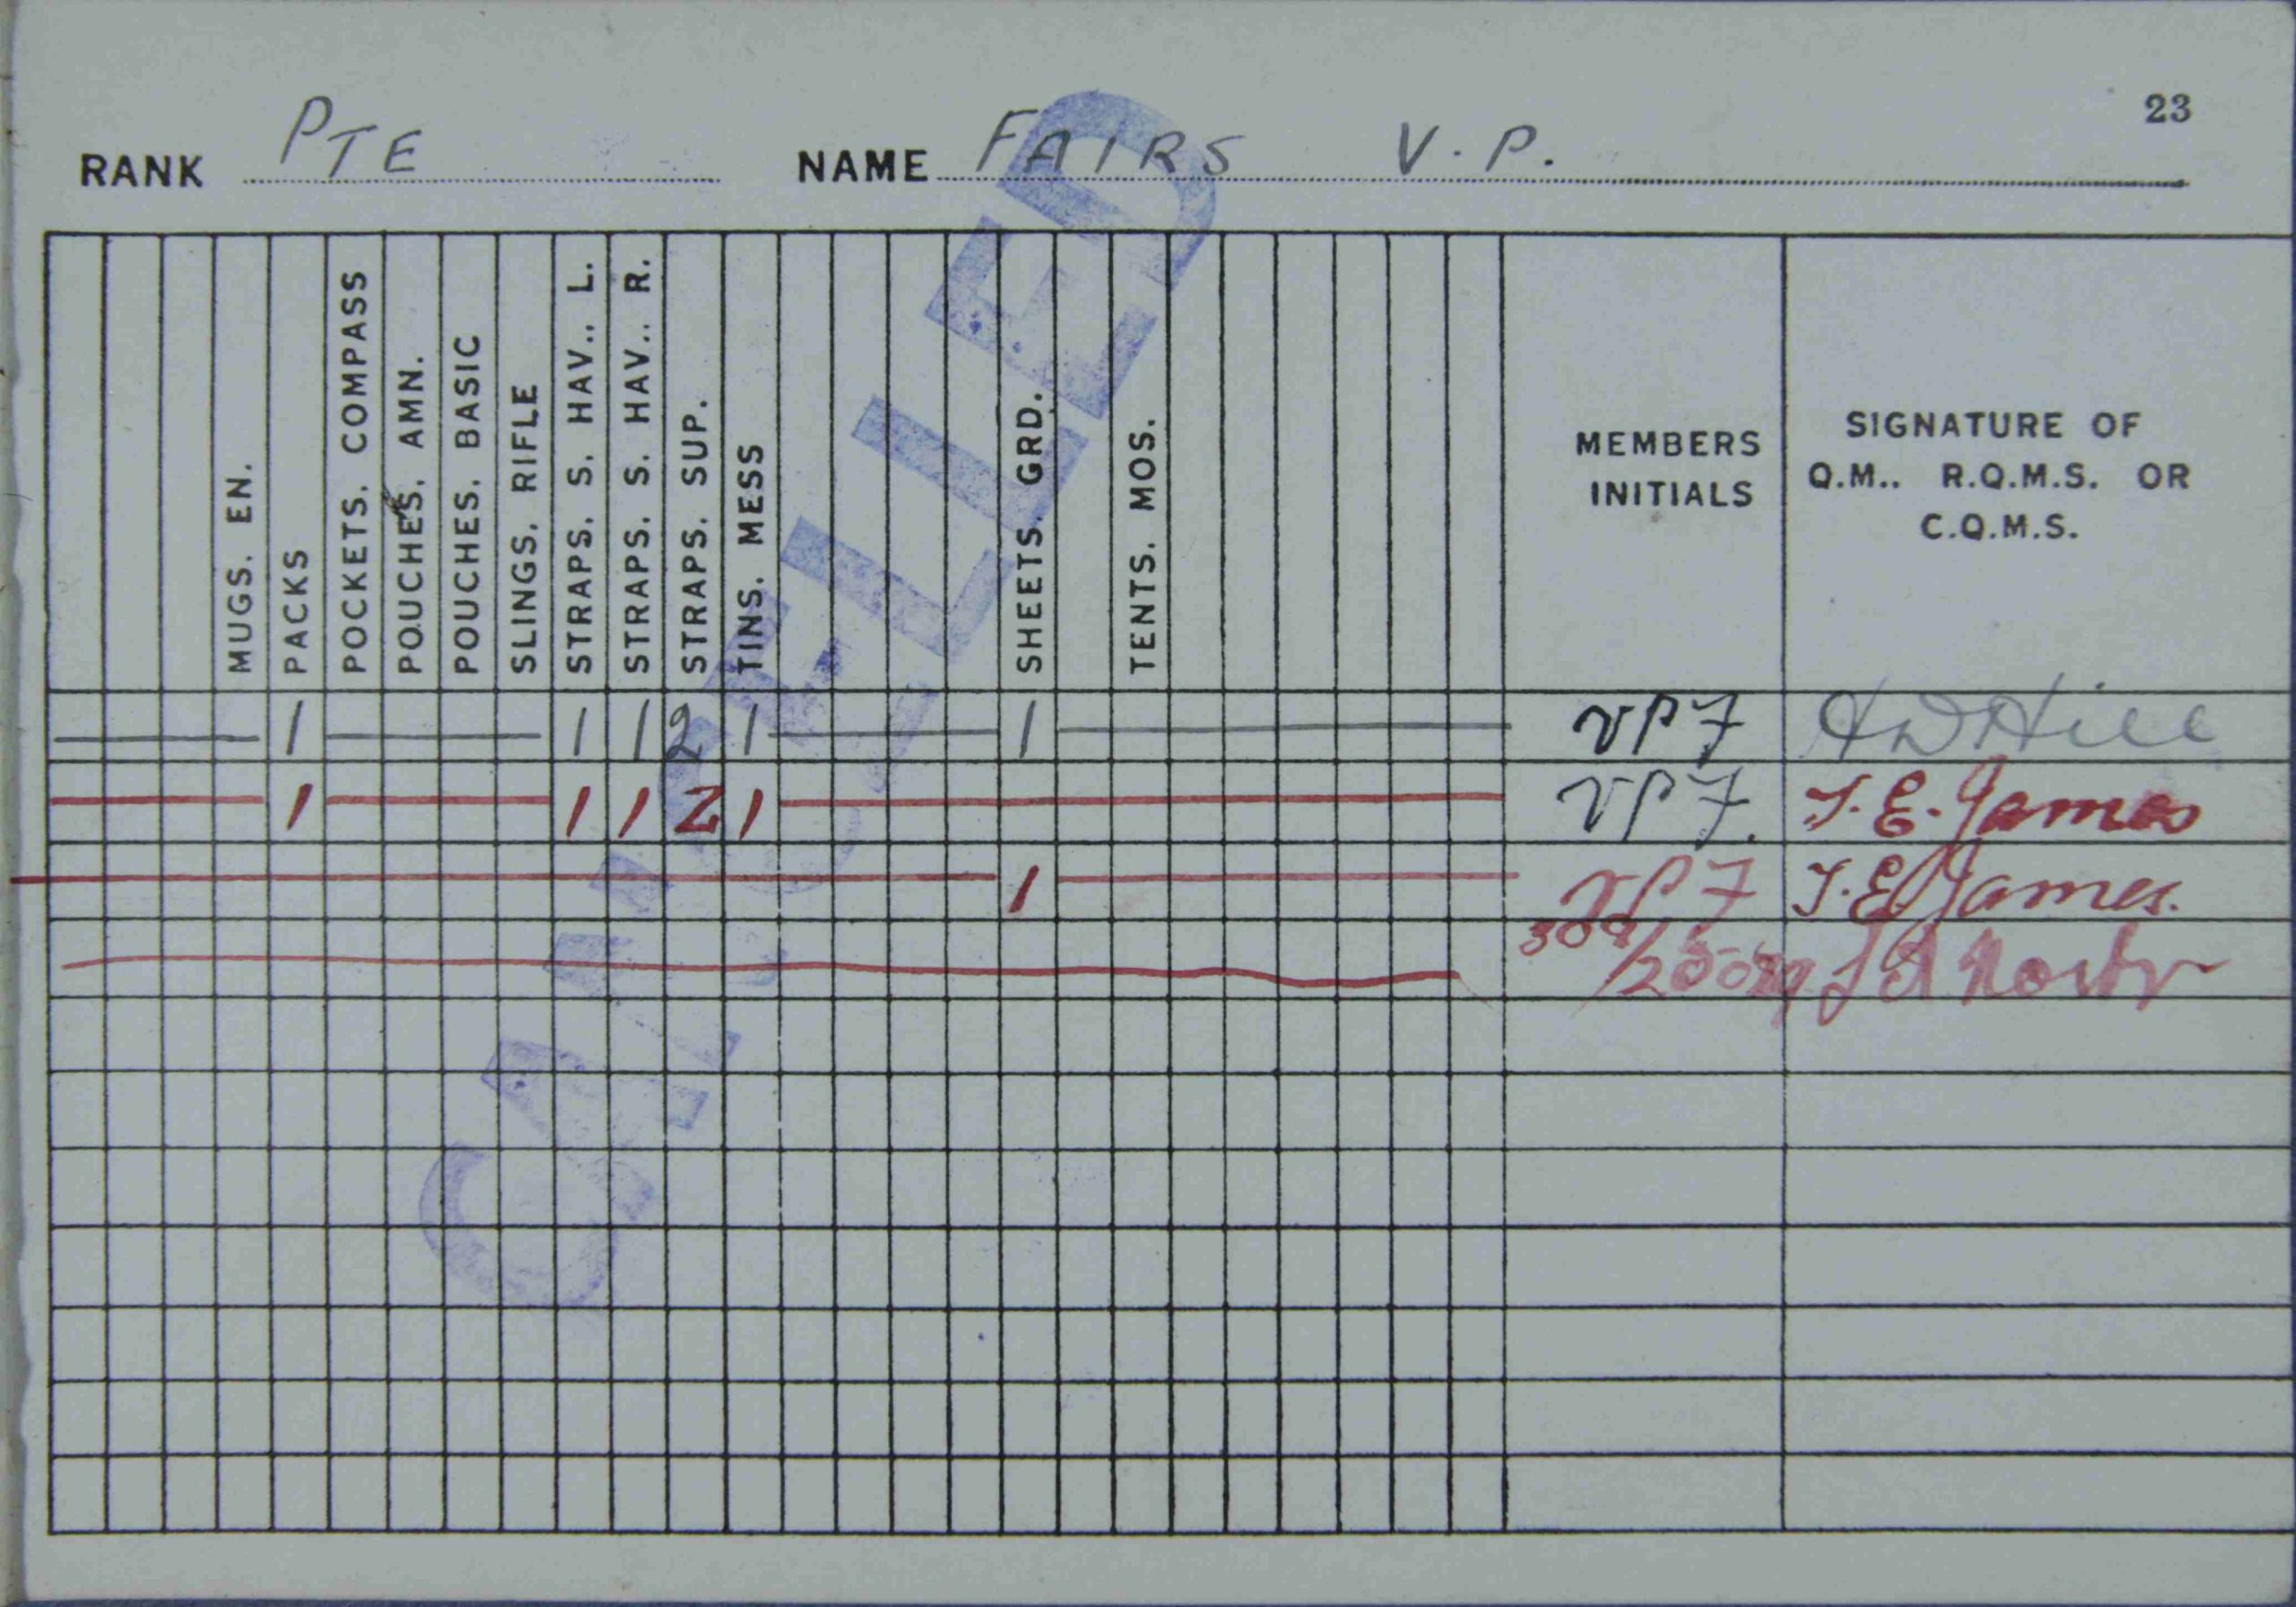 23
RANK PTE NAME FAIRS V.P.
MUGS. EN.
PACKS
POCKETS. COMPASS
POUCHES. AMN.
POUCHES. BASIC
SLINGS. RIFLE
STRAPS. S. HAV.. L.
STRAPS. S. HAV.. R.
STRAPS. SUP.
TINS. MESS
SHEETS. GRD.
TENTS. MOS.
MEMBERS
INITIALS
SIGNATURE OF
Q.M.. R.Q.M.S. OR
C.Q.M.S.
1 1 1 2 1 1 VPF HDHill
1 1 1 2 1 VPF. T.E. James
1 VPF T.E James.
CANCELLED